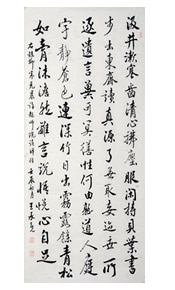 汲井漱寒齒清心拂塵服閒持貝葉書
步出東齋讀真源了無取妄迹世所
逐遺言冀可冥繕性何由熟道人庭
宇靜苔色連深竹日出霧露餘青松
如膏沐澹然離言說悟悅心自足
右錄柳宗元晨詣超師院讀禪經